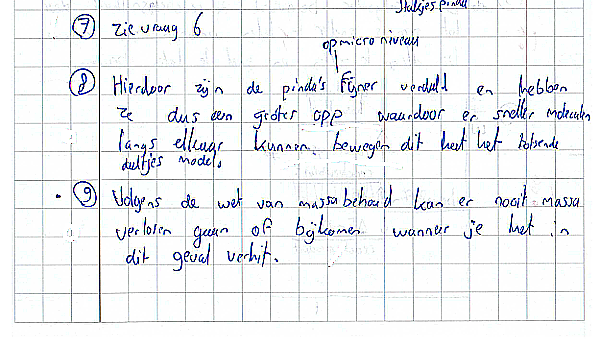 stukjes pinda
7 zie vraag 6
op micro niveau
8 Hierdoor zijn de pinda's fijner verdeld en hebben
ze dus een groter opp waardoor er sneller moleculen
langs elkaar kunnen bewegen dit heet het botsende
deeltjes model.
9 Volgens de wet van massabehoud kan er nooit massa
verloren gaan of bijkomen wanneer je het in
dit geval verhit.